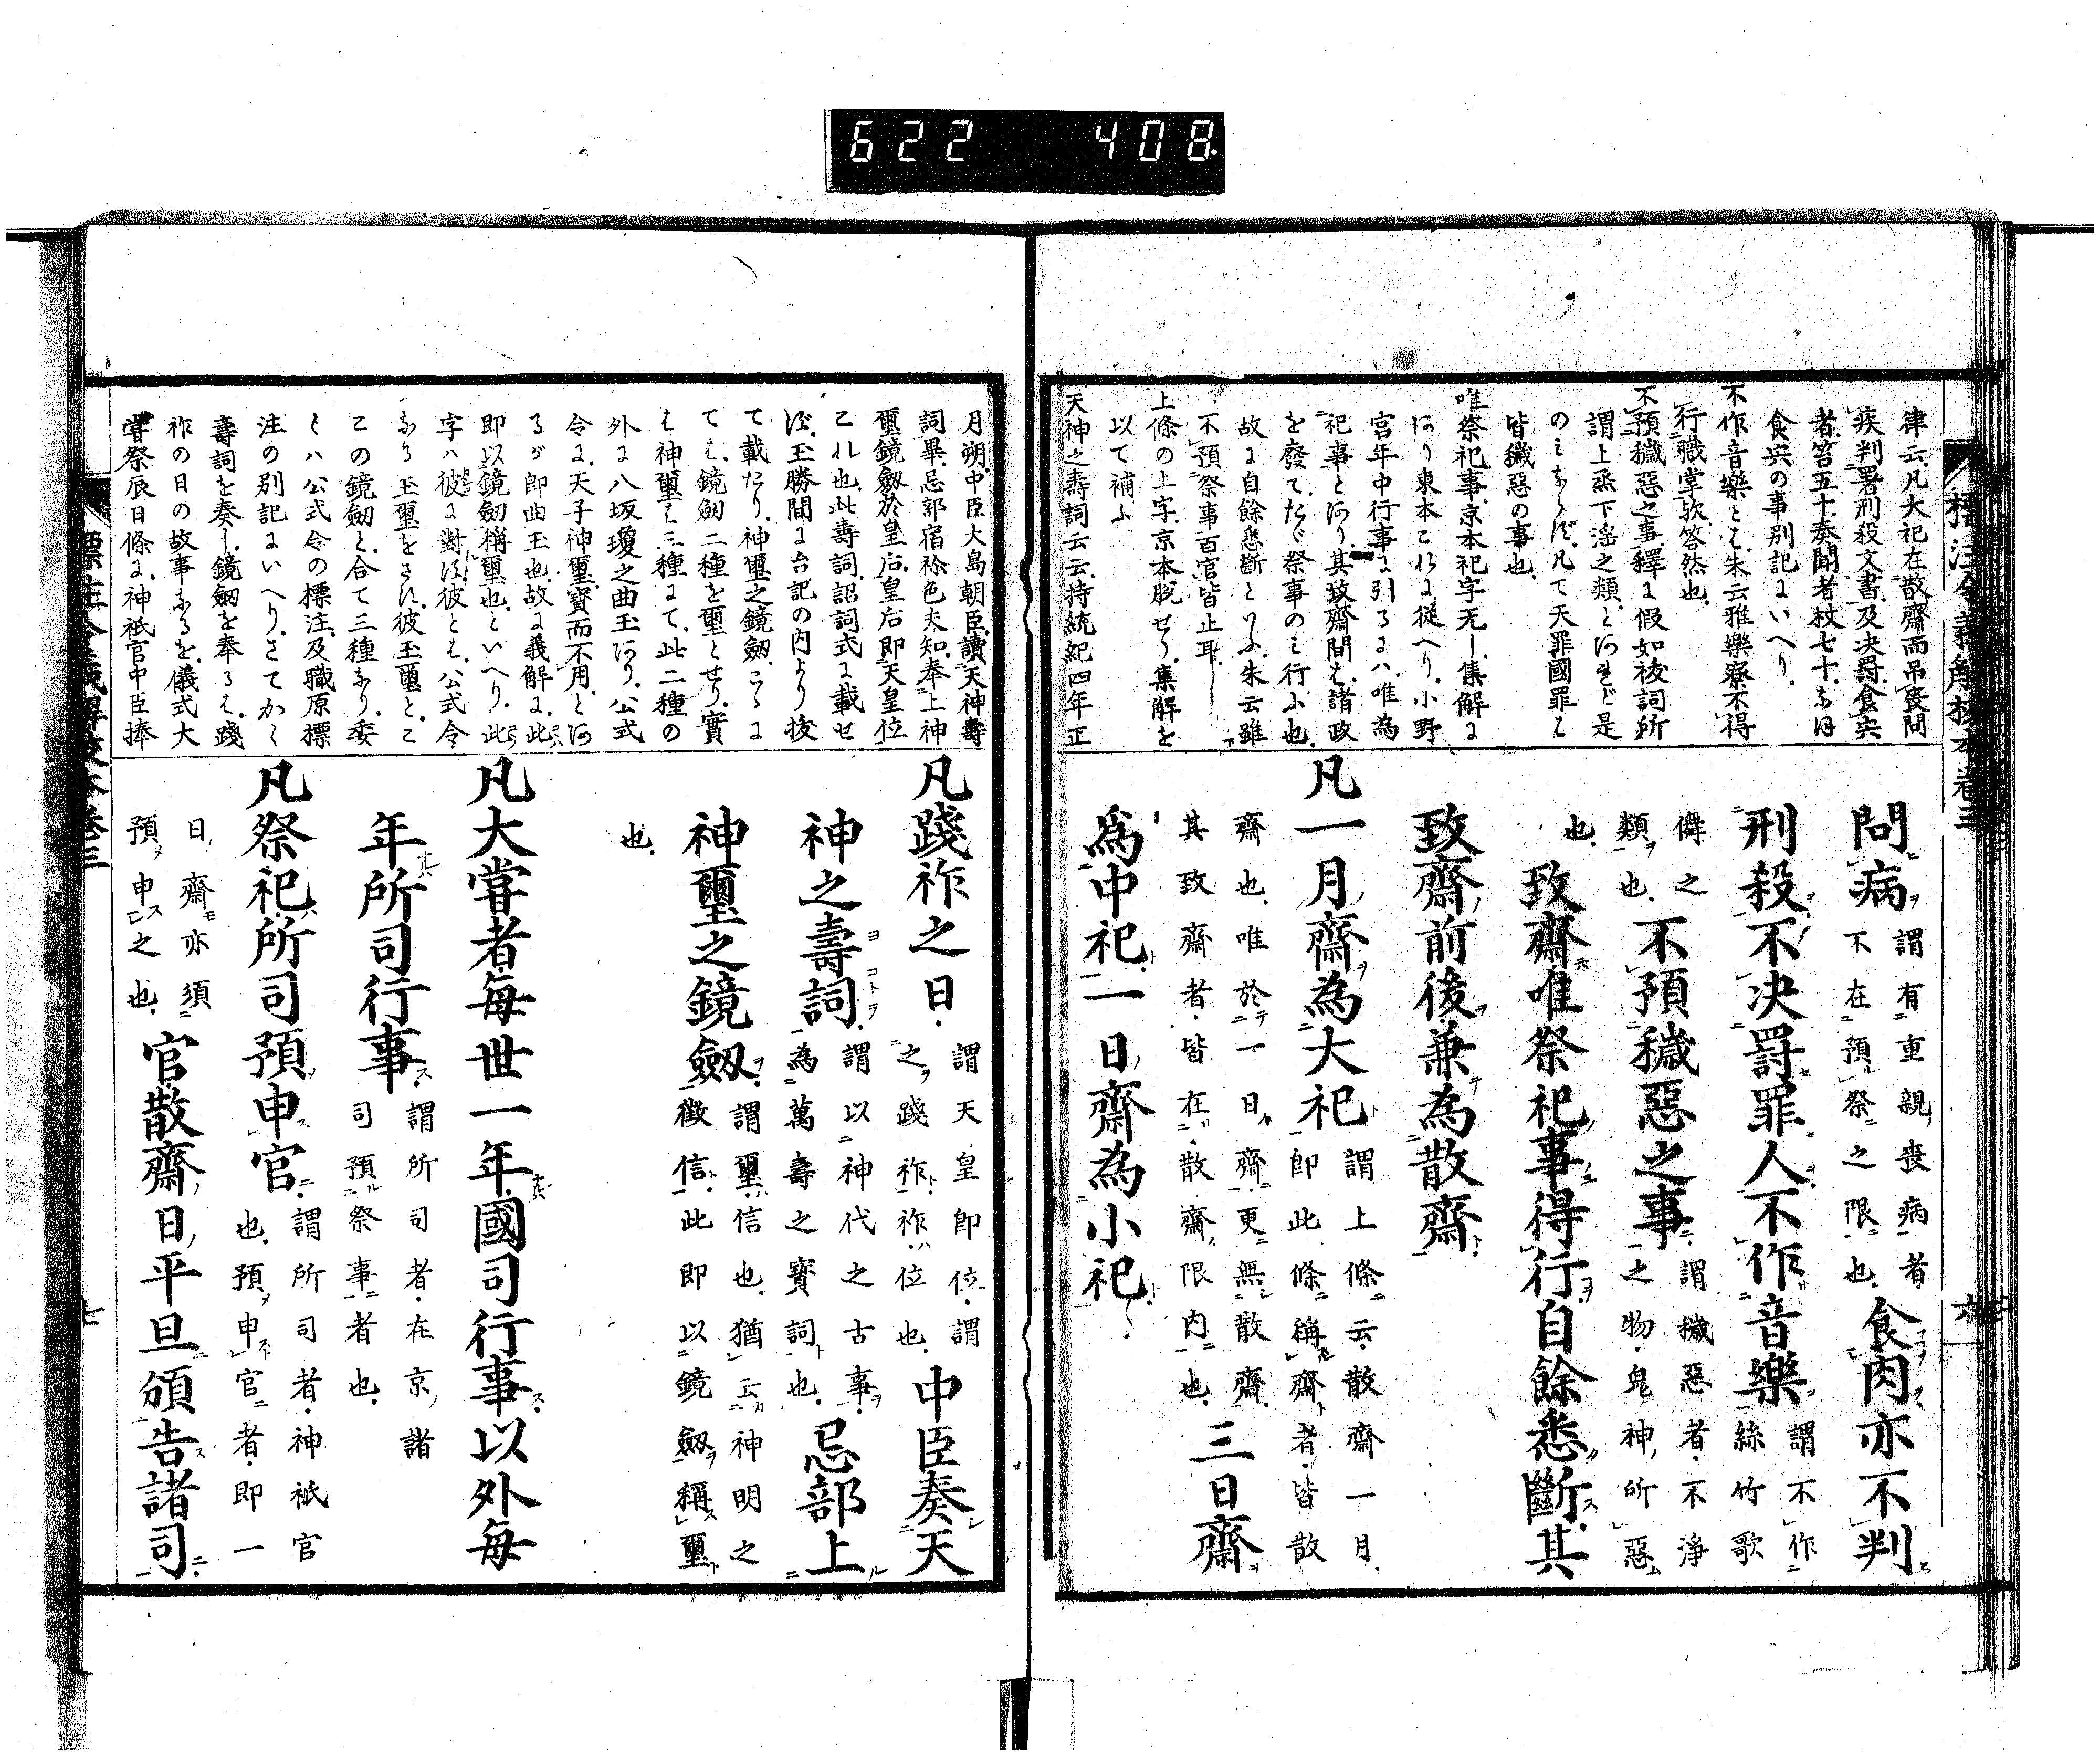 622 408
律云凡大祀在散齋而吊喪問
疾判署刑殺文書及决罸食宍
者笞五十奏聞者杖七十なほ
食宍の事別記にいへり
不作音樂とは朱云雅樂寮不得
行職掌歟答然也
不預穢惡之事釋に假如祓詞所
謂上烝下淫之類とあれど是
のみならず凡て天罪國罪は
皆穢惡の事也
唯祭祀事京本祀字无し集解に
あり東本これに從へり小野
宮年中行事に引るには唯為
祀事とあり其致齋間は諸政
を廢てたゞ祭事のみ行ふ也
故に自餘悉斷といふ朱云雖
不預祭事百官皆止耳
上條の上字京本脱せり集解を
以て補ふ
天神之壽詞云云持統紀四年正
問病 謂有重親喪病者
不在預祭之限也 食肉亦不判
刑殺不決罸罪人不作音樂 謂不作
絲竹歌
儛之
類也 不預穢惡之事 謂穢惡者不淨
之物鬼神所惡
也 致齋唯祭祀事得行自餘悉斷其
致齋前後兼為散齋
凡一月齋為大祀 謂上條云散齋一月
即此條稱齋者皆散
齋也唯於一日齋更無散齋
其致齋者皆在散齋限内也 三日齋
為中祀一日齋為小祀
標注令義解校本卷三 六
月朔中臣大島朝臣讀天神壽
詞畢忌部宿祢色夫知奉上神
璽鏡劔於皇后皇后即天皇位
これ也此壽詞詔詞式に載せ
ず玉勝間に台記の内より抜
て載たり神璽之鏡劔こゝに
ては鏡劔二種を璽とせり實
は神璽は三種にて此二種の
外に八坂瓊之曲玉あり公式
令に天子神璽寳而不用とあ
るが即曲玉也故に義解に此
即以鏡劔稱璽也といへり此
字ハ彼に對ず彼とは公式令
なる玉璽をさす彼玉璽とこ
この鏡劔と合て三種なり委
くハ公式令の標注及職原標
注の別記にいへりさてかく
壽詞を奏し鏡劔を奉るは踐
祚の日の故事なるを儀式大
甞祭辰日條に神祇官中臣捧
凡踐祚之日 謂天皇即位謂
之踐祚祚位也 中臣奏天
神之壽詞 謂以神代之古事
為萬壽之寳詞也 忌部上
神璽之鏡劔 謂璽信也猶云神明之
徴信此即以鏡劔稱璽
也
凡大甞者毎世一年國司行事以外毎
年所司行事 謂所司者在京諸
司預祭事者也
凡祭祀所司預申官 謂所司者神祇官
也預申官者即一
日齋亦須
預申之也 官散齋日平旦頒告諸司
標注令義解校本卷三 七